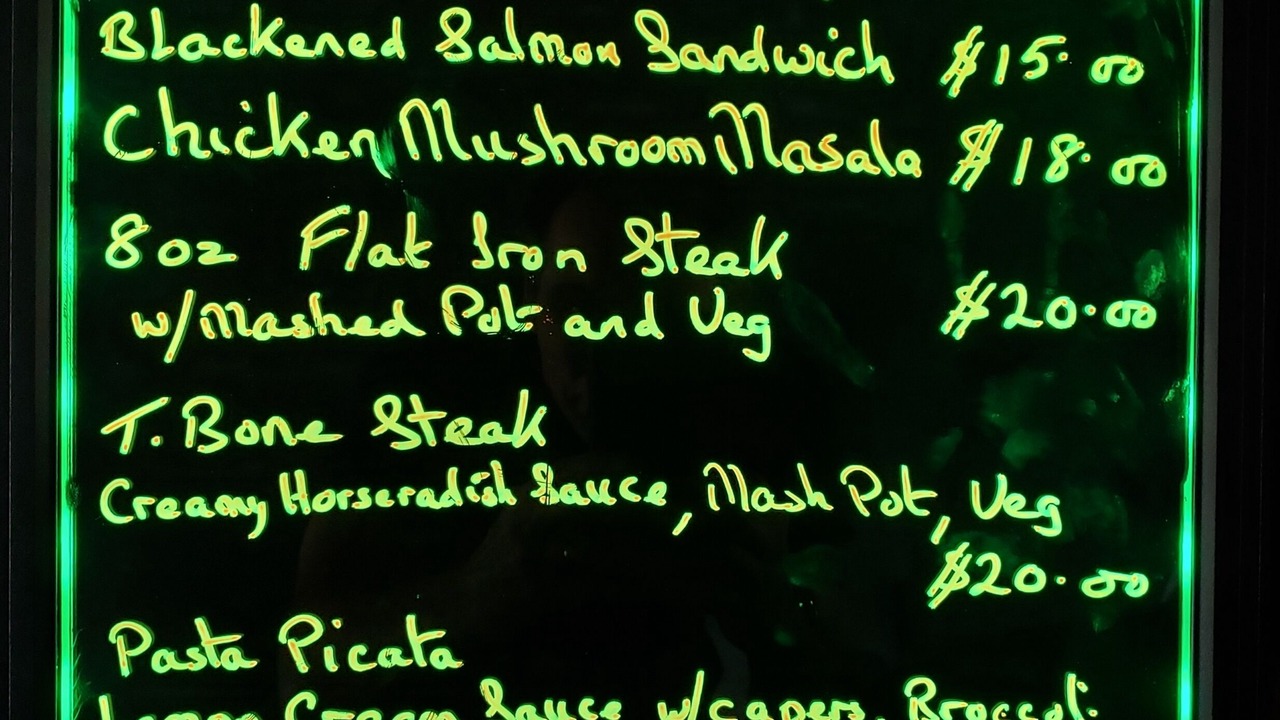 Blackened Salmon Sandwich $15.00
Chicken Mushroom Masala $18.00
8oz Flat Iron Steak
w/Mashed Pot and Veg $20.00
T. Bone Steak
Creamy Horseradish Sauce, Mash Pot, Veg
$20.00
Pasta Picata
Lemon Cream Sauce w/capers, Broccoli